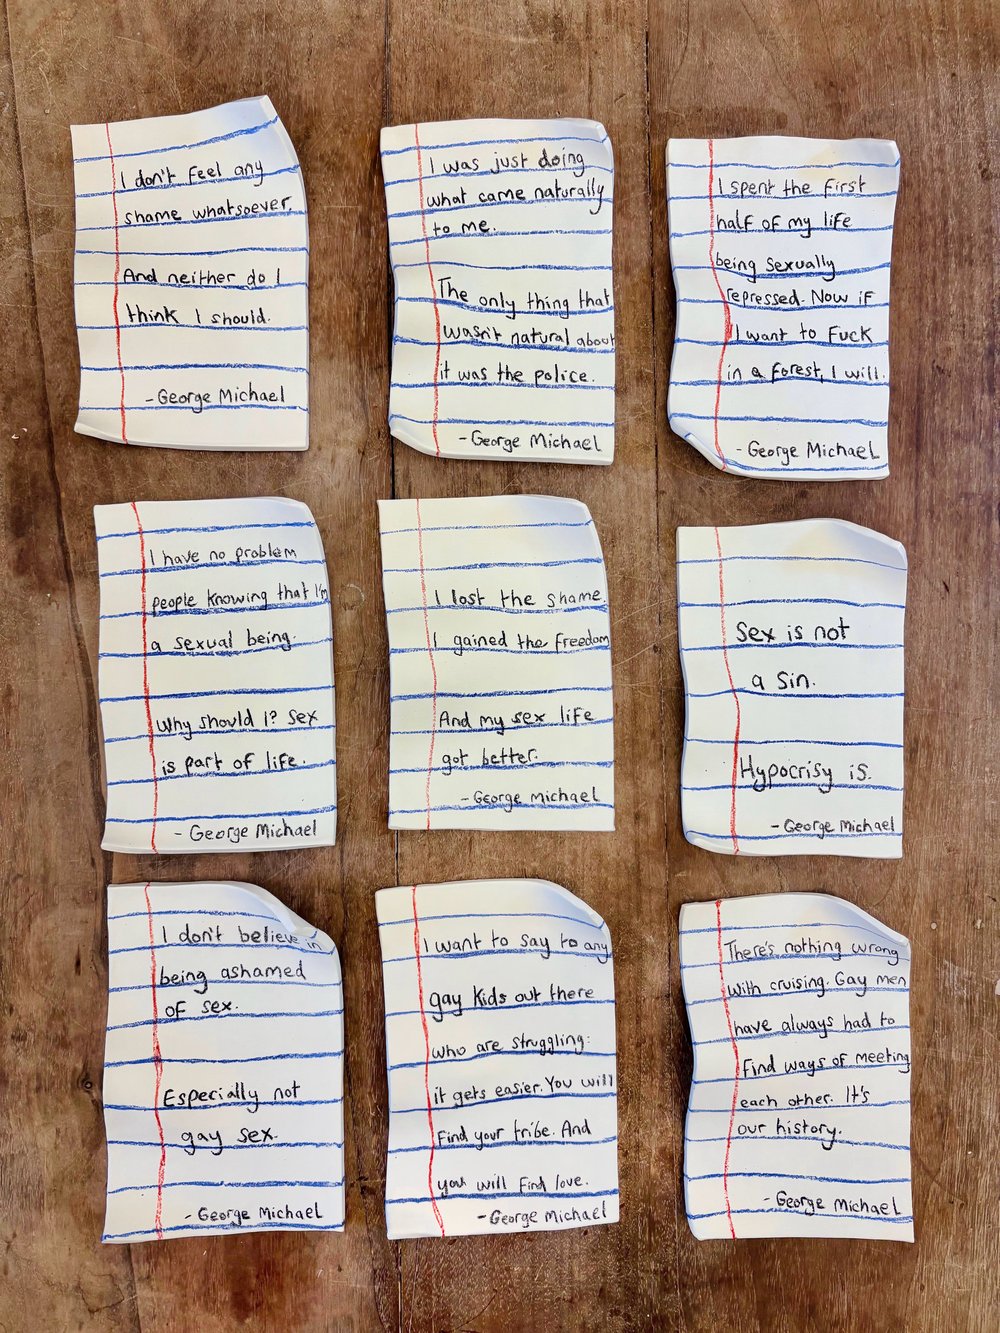 I don't feel any
shame whatsoever.
And neither do I
think I should.
- George Michael
I was just doing
what came naturally
to me.
The only thing that
wasn't natural about
it was the police.
- George Michael
I spent the first
half of my life
being sexually
repressed. Now if
I want to fuck
in a forest, I will.
- George Michael
I have no problem
people knowing that I'm
a sexual being.
Why should I? Sex
is part of life.
- George Michael
I lost the shame.
I gained the freedom
And my sex life
got better.
- George Michael
Sex is not
a sin.
Hypocrisy is.
- George Michael
I don't believe in
being ashamed
of sex.
Especially not
gay sex.
- George Michael
I want to say to any
gay kids out there
who are struggling:
it gets easier. You will
find your tribe. And
you will find love.
- George Michael
There's nothing wrong
with cruising. Gay men
have always had to
find ways of meeting
each other. It's
our history.
- George Michael